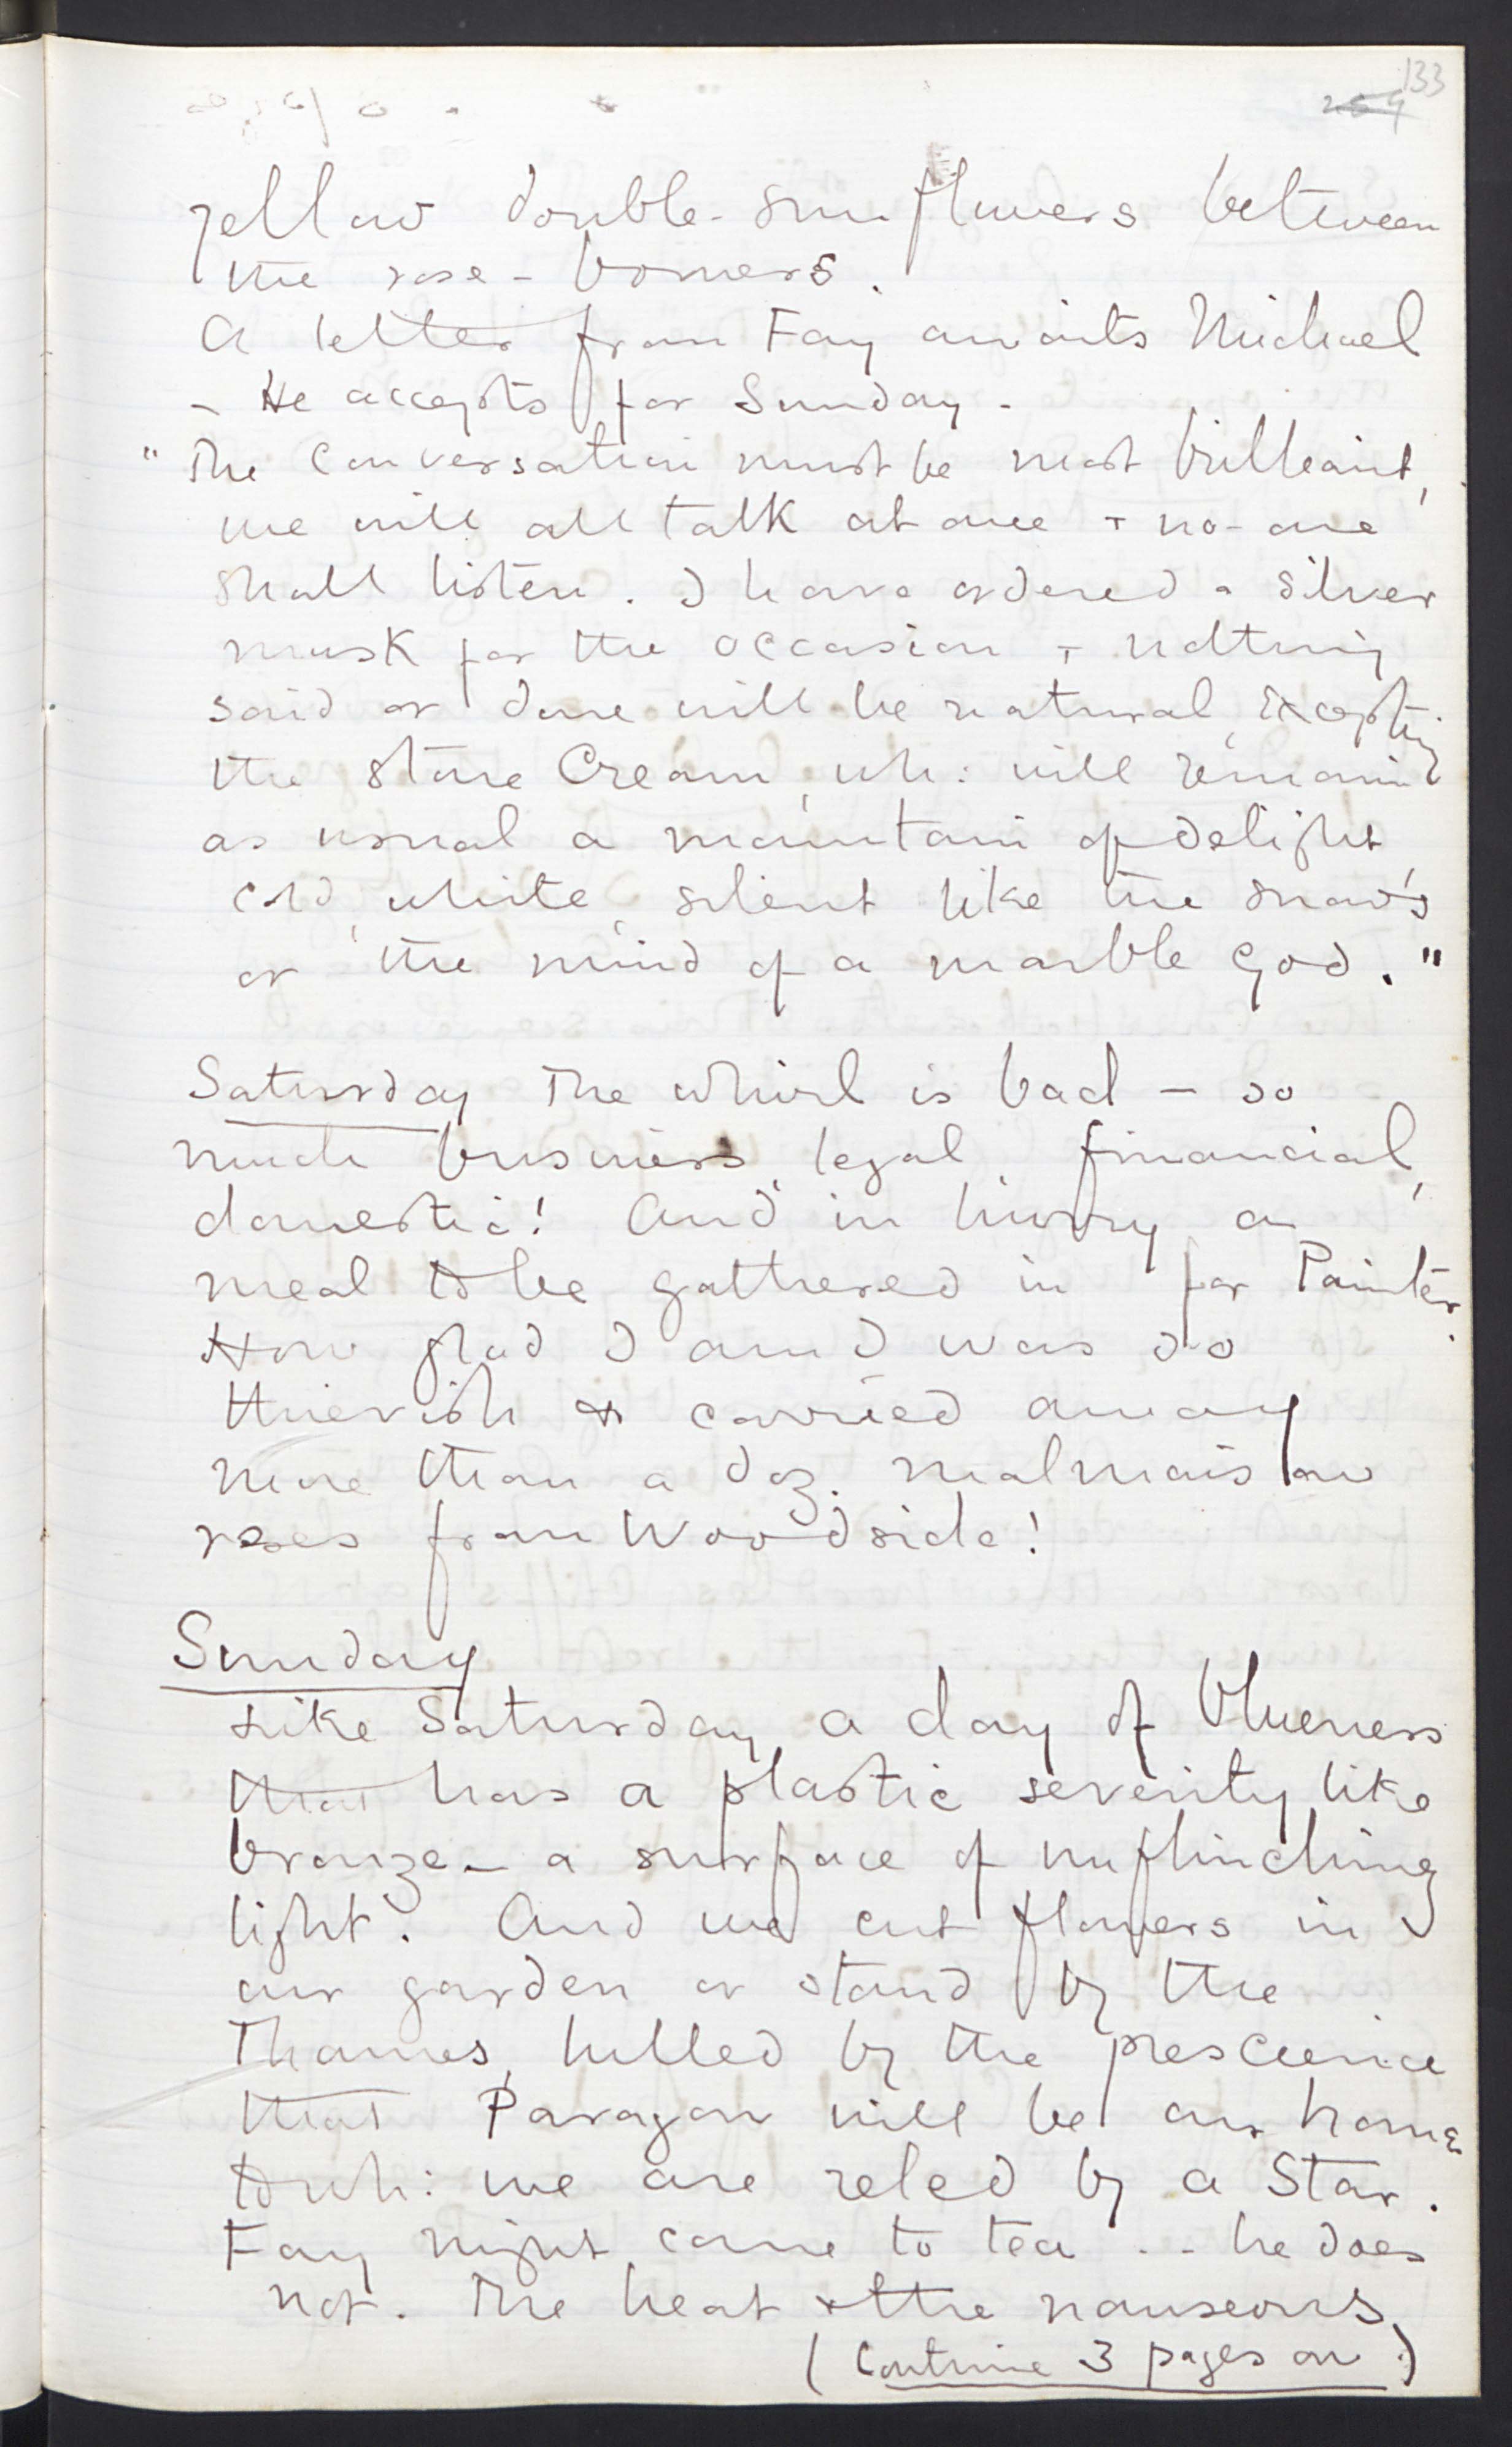 133
259
yellow double-sunflowers between
the rose-bowers.
A letter from Fay awaits Michael
- He accepts for Sunday -
"The conversation must be most brilliant,
we will all talk at once + no-one
shall listen. I have ordered a silver
mask for the occasion + nothing
said or done will be natural, excepting
the stone Cream, wh: will remain
as usual a mountain of delight,
cold, white, silent like the snows
or the mind of a marble god."
Saturday The whirl is bad - so
much business, legal, financial,
domestic! And in hurry a
meal to be gathered in for Painter.
How glad I am I was so
thievish & carried away
more than a doz. malmaison
roses from Woodside!
Sunday
Like Saturday, a day of blueness
that has a plastic severity like
bronze - a surface of unflinching
light. And we cut flowers in
our garden or stand by the
Thames, lulled by the prescience
that Paragon will be our home
to wh: we are led by a Star.
Fay might come to tea .. he does
not. The heat & the nauseous
(Continue 3 pages on.)